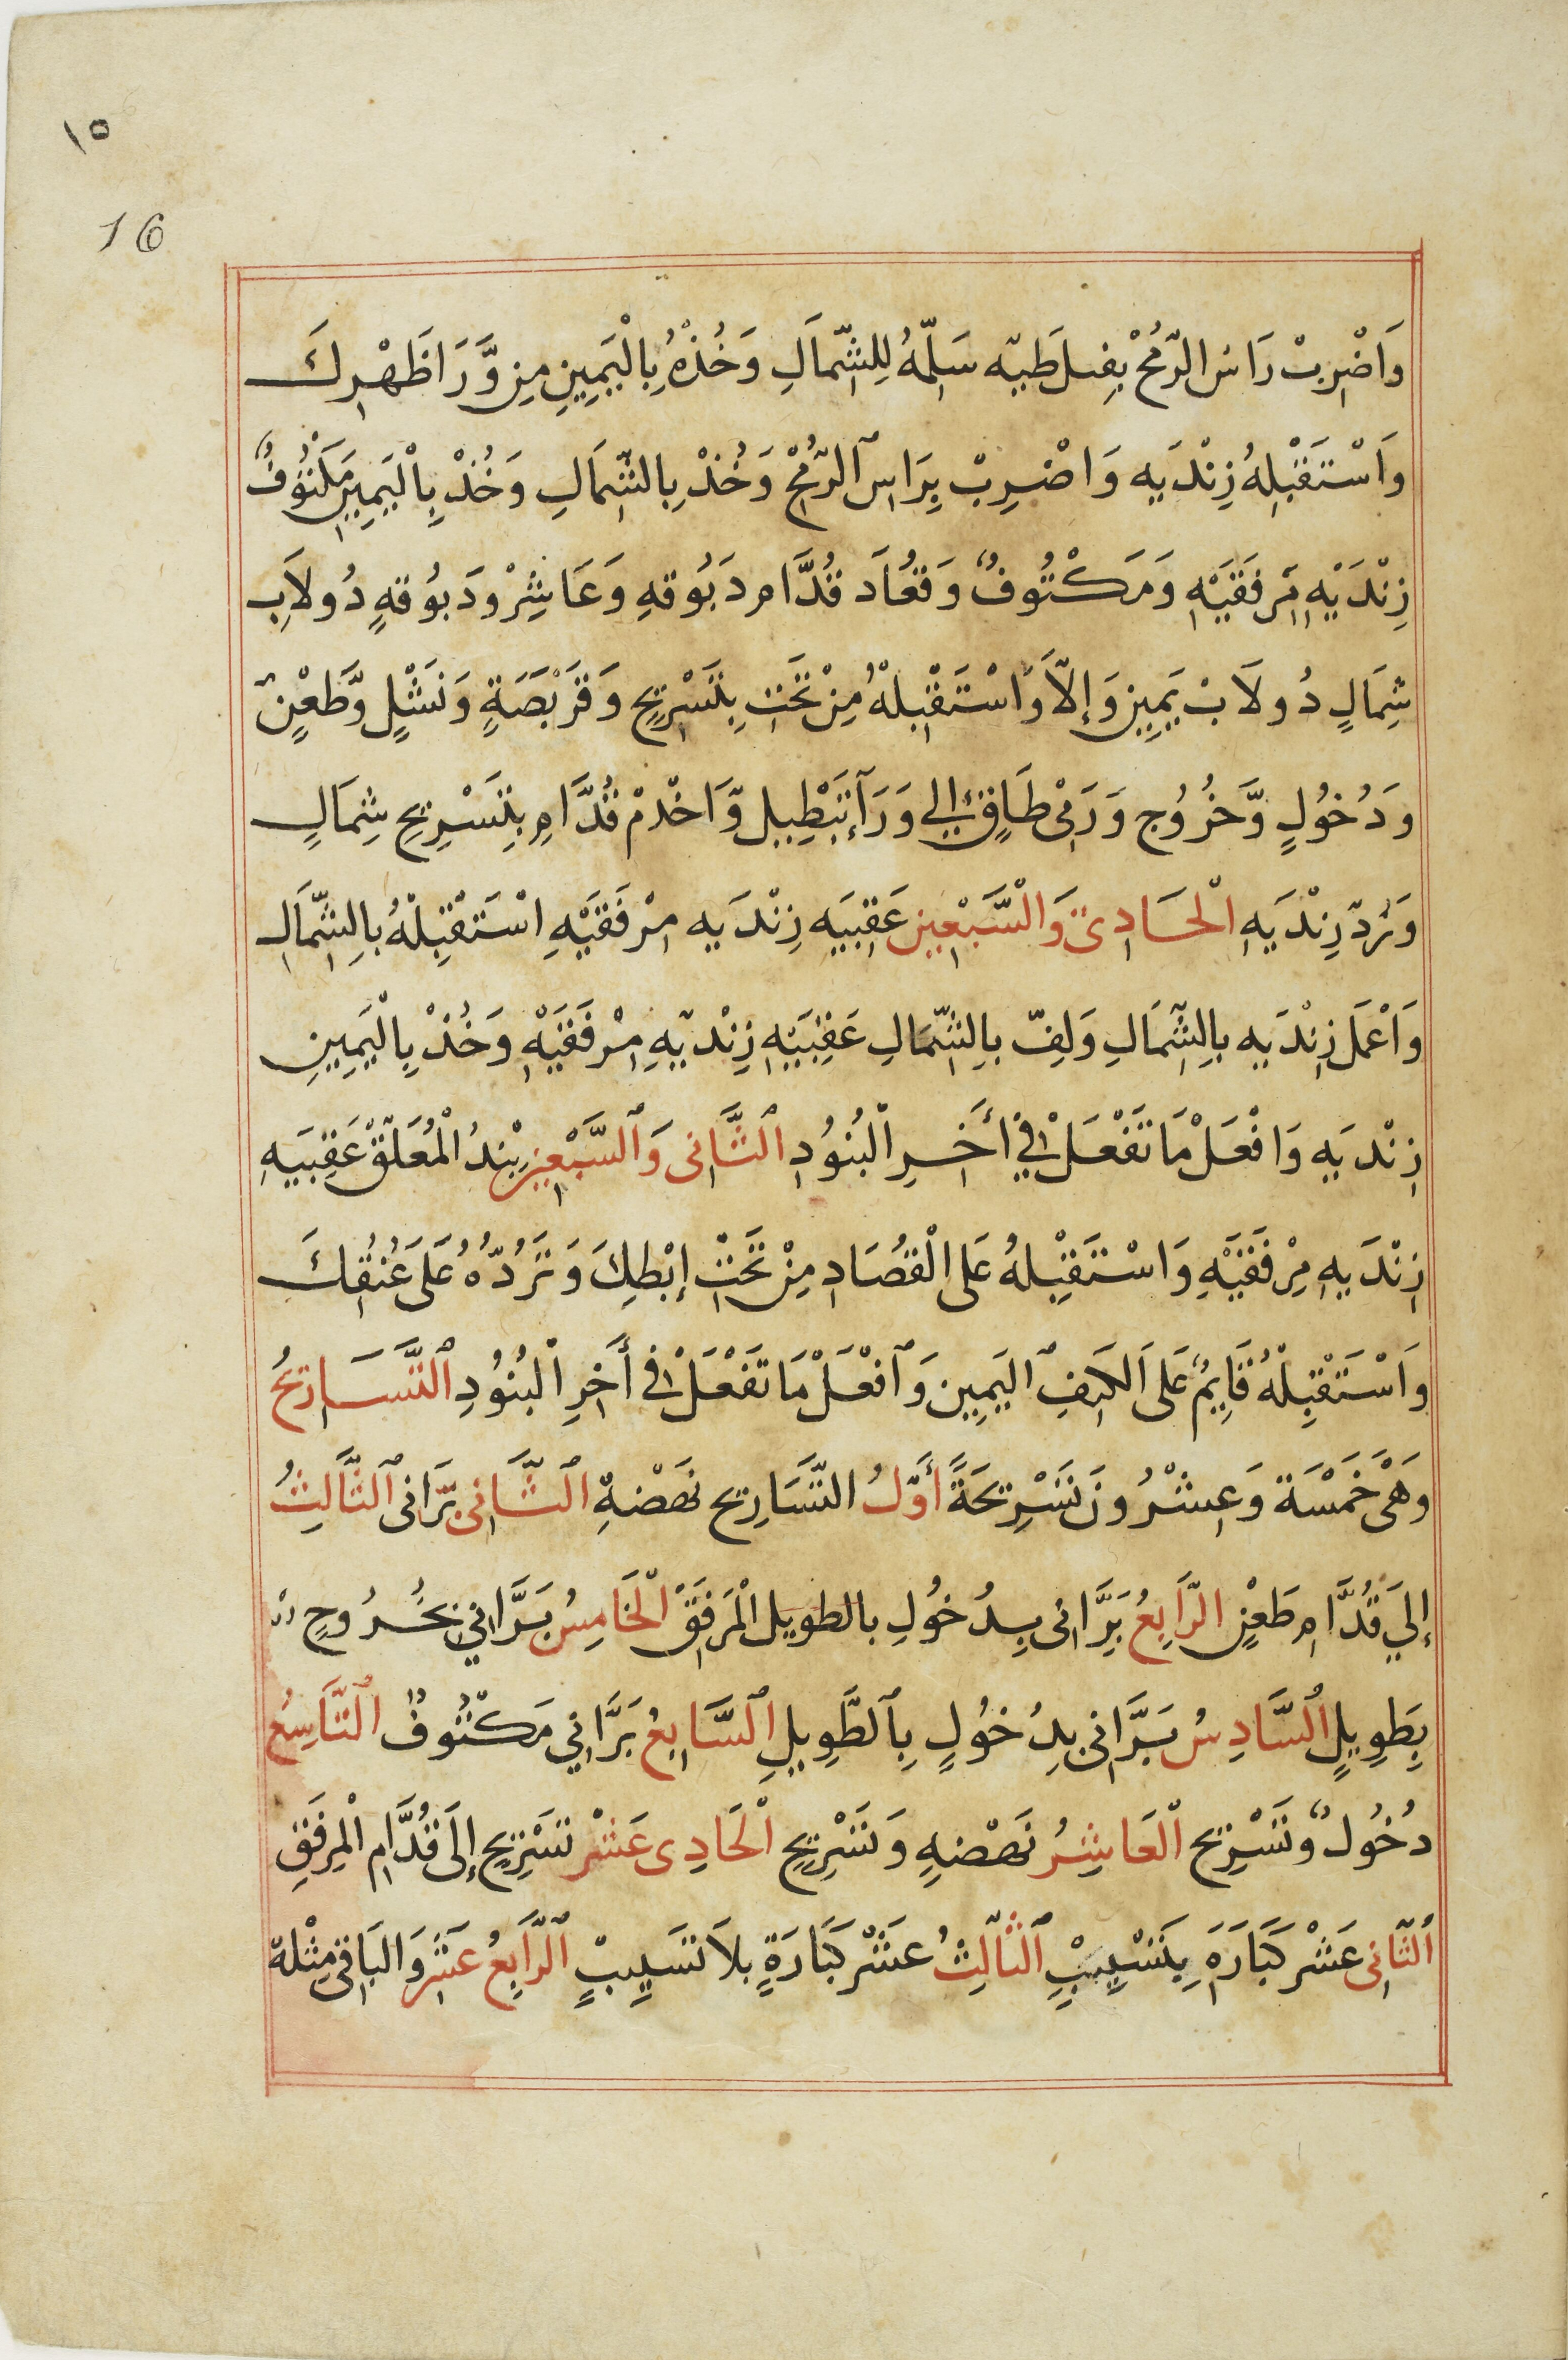 ١٥
16
وَاضْرِبْ رَاسَ الرُّمْحْ بِفِسلَطيّه سَلِّمْهُ لِلشِّمَالِ وَخُذْهُ بِالْيَمِينِ مِن وَّرَا ظَهْرِكَ
وَاسْتَقْبِلهُ زِنْدَيه وَاضْرِبْ بِرَاسِ الرُّمْحْ وَخُذْ بِالشِّمَالِ وَخُذْ بِالْيَمِينِ مَكْتُوفٌ
زِنْدَيْهِ مِرْفَقَيْهِ وَمَكْتُوفٌ وَقعَاد قُدَّام دَبُوقهِ وَعَاشِرْ وَدَبُوقهٍ دُولاَبِ
شِمَالٍ دُولاَبْ يَمِينٍ وَإِلاَّ وَاسْتَقْبِلْهُ مِنْ تَحْتِ بِتَسْرِيحٍ وَقَرْبَصَةٍ وَنَشْلٍ وَّطَعْنٍ
وَدُخُولٍ وَّخُرُوج وَرَمْى طَاقٍ إلي وَرَآ بِتَبْطِيل وَّاخْدمْ قُدَّامِ بِتَسْرِيحِ شِمَالٍ
وَتَرُدّ زِنْدَيهِ الْحَادِىّ وَالسَّبْعِين عَقِبيَه زِنْدَيه مِرْفَقَيْهِ اسْتَقْبِلْهُ بِالشِّمَالِ
وَاعْمَل زِنْدَيه بِالشِّمَالِ وَلِفّ بِالشِّمَالِ عَقِبيَهِ زِنْديهِ مِرْفَقَيْهِ وَخُذْ بِالْيَمِينِ
زِنْديَهِ وَافْعَلْ مَا تَفْعَلْ فِي أَخِرِ الْبُنُودِ الثَّانى وَالسَّبْعِين بْندُ الْمُعَلَّقْ عَقِبيَهِ
زِنْدَيهِ مِرْفَقَيْهِ وَاسْتَقْبِلهُ عَلى الْقُصَادِ مِنْ تَحْتِ إبْطِكَ وَتَرُدُّهُ عَلَى عُنُقِكَ
وَاسْتَقْبِلْهُ قَايِمٌ عَلَى الكَتِفِ اليَمِينِ وَافْعَلْ مَا تَفْعَلْ فى أَخِرِ الْبُنُودِ التَّسَارِيحُ
وَهىَ خَمْسَة وَعِشْرُون تَسْرِيحَةً أَوَّلُ التَّسَارِيح نَهَضْهةِ الثَّانِى بَرَّانى الثَّالِثُ
إلي قُدَّامِ طَعْنٍ الرَّابِعُ بَرَّانى بِدُخُولِ بالطويل الْمَرفِقَ الْخَامِسُ بَرَّاني بِخُرُوجِ
بِطِوِيلٍ السَّادِسُ بَرَّانى بِدُخُولٍ بِالطَّوِيلِ السَّابِعُ بَرَّاني مَكْتُوفٌ التَّاسِعُ
دُخُولٌ وَتَسْرِيح الْعَاشِرُ نَهَضْهةٍ وَتَسْرِيحِ الْحَادِى عَشْرِ تَسْرِيحٍ إلَى قُدَّامِ الْمِرفَقِ
الثَّانِى عَشْرِ كَبَارَةِ بِتَسْيِيبٍ الثَّالِثُ عَشْرَ كَبَارَةٍ بلاَ تَسَيِيبٍ الرَّابِعُ عَشَر وَالبَاقِى مِثْلهُ